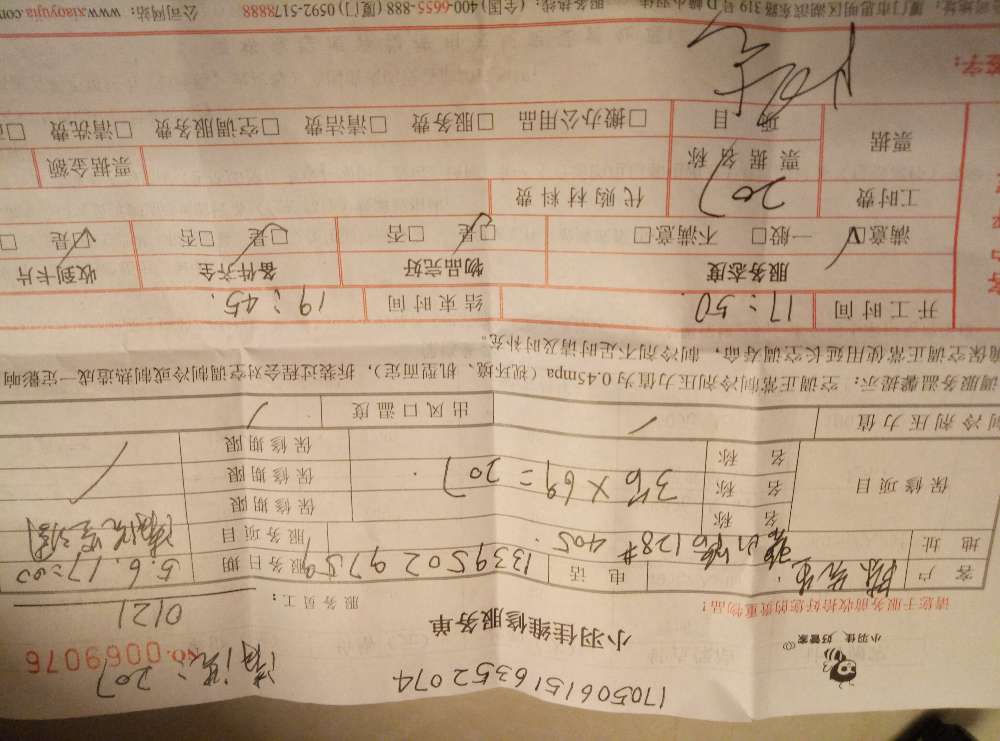 17050615163352074
小羽佳 好管家
小羽佳维修服务单
清洗:207
No.0069076
请您于服务前收拾好您的贵重物品!
服务员工: 0121
客户 电话 13395029759 服务日期 5.6.17:00
地址 128# 405. 服务项目 清洗空调
保修项目 名称 保修期限
名称 3台×69=207. 保修期限
名称 保修期限
制冷剂压力值 / 出风口温度 /
调服务温馨提示: 空调正常制冷剂压力值为0.45mpa (视环境、机型而定), 拆装过程会对空调制冷或制热造成一定影响
确保空调正常使用延长空调寿命, 制冷剂不足时请及时补充。
开工时间 17:50. 结束时间 19:45.
服务态度 物品完好 备件齐全 收到卡片
满意☑ 一般□ 不满意□ ☑是 □否 ☑是 □否 ☑是
工时费 207 代购材料费
票据 票据名称 票据金额
项目 □搬办公用品 □服务费 □清洁费 □空调服务费 □清洗费
签字:
厦门市思明区湖滨东路319号D幢 服务热线: (全国) 400-6655-888 (厦门) 0592-5178888 公司网站: www.xiaoyujia.com